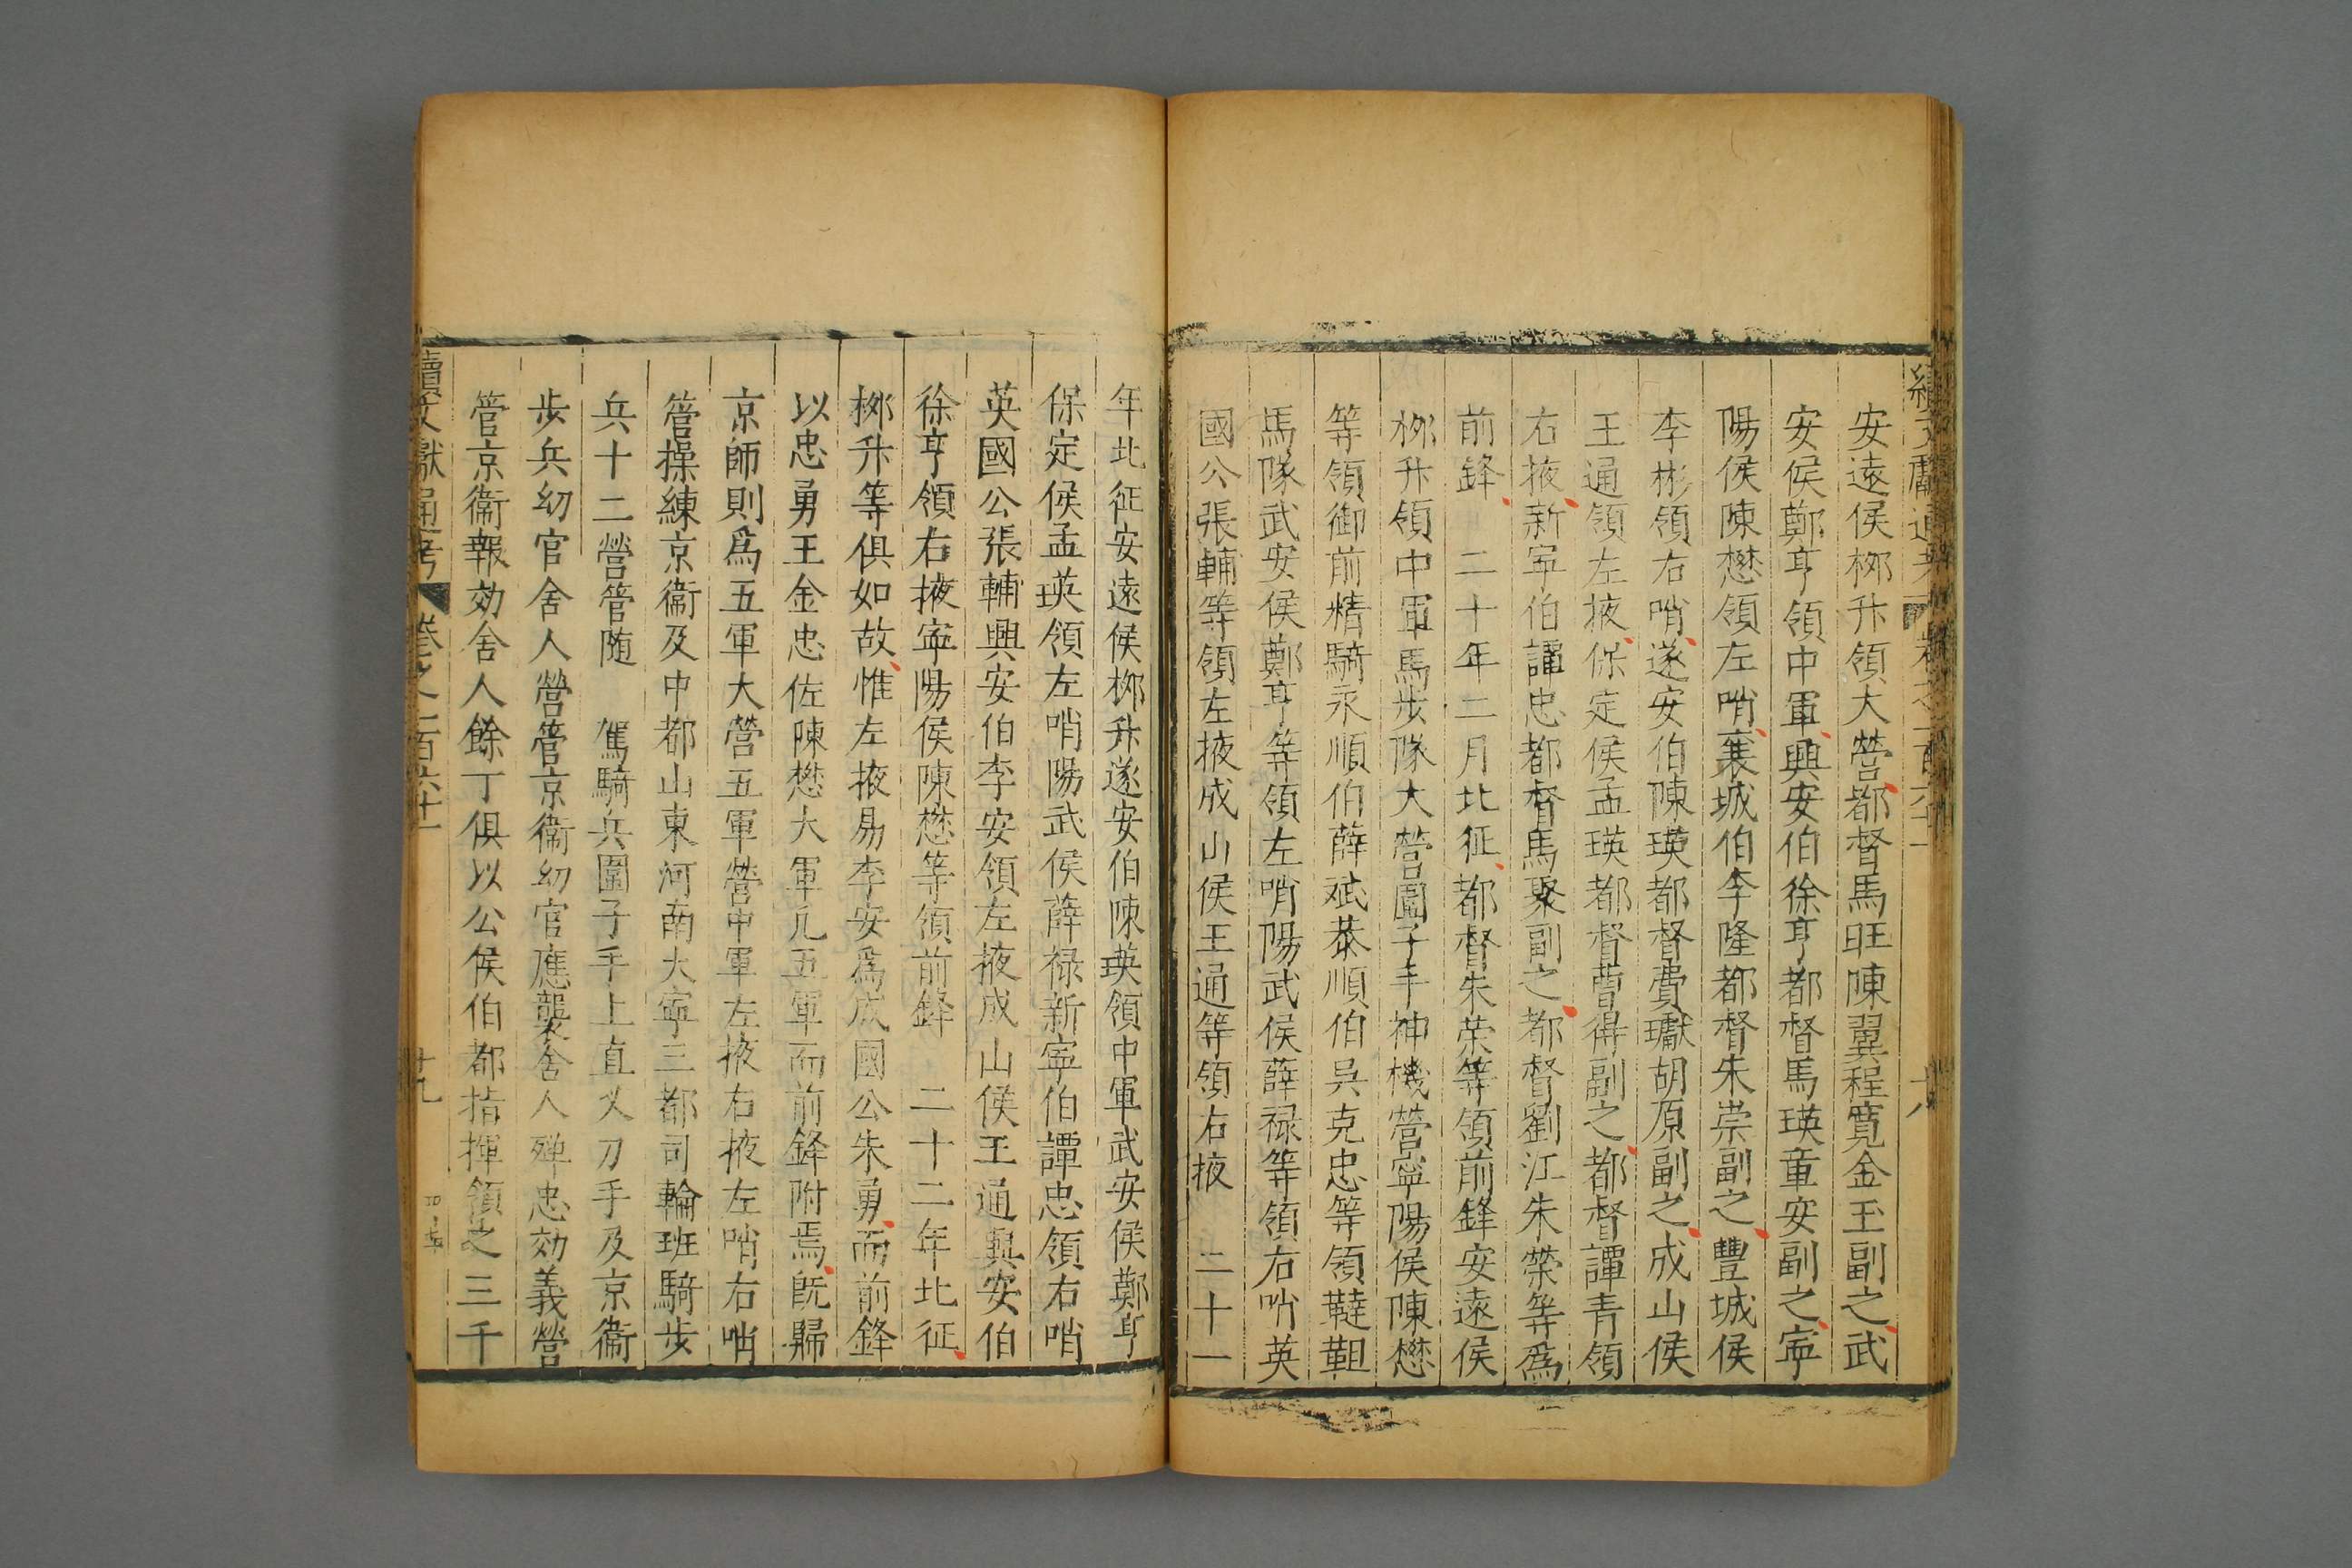 安遠侯栁升領大營都督馬旺陳翼程寬金玉副之武
安侯鄭亨領中軍興安伯徐亨都督馬瑛章安副之寧
陽侯陳懋領左哨襄城伯李隆都督朱崇副之豐城侯
李彬領右哨遂安伯陳瑛都督費瓛胡原副之成山侯
王通領左掖保定侯孟瑛都督曹得副之都督譚青領
右掖新寧伯譚忠都督馬聚副之都督劉江朱榮等爲
前鋒　二十年二月北征都督朱荣等領前鋒安遠侯
栁升領中軍馬步隊大營圍子手神機營寧陽侯陳懋
等領御前精騎永順伯薛斌恭順伯吳克忠等領韃靼
馬隊武安侯鄭亨等領左哨陽武侯薛禄等領右哨英
國公張輔等領左掖成山侯王通等領右掖　二十一
年北征安遠侯栁升遂安伯陳英領中軍武安侯鄭亨
保定侯孟瑛領左哨陽武侯薛禄新寧伯譚忠領右哨
英國公張輔興安伯李安領左掖成山侯王通興安伯
徐亨領右掖寧陽侯陳懋等領前鋒　二十二年北征
栁升等俱如故惟左掖易李安爲成國公朱勇而前鋒
以忠勇王金忠佐陳懋大軍凡五軍而前鋒附焉既歸
京師則爲五軍大營五軍營中軍左掖右掖左哨右哨
管操練京衞及中都山東河南大寧三都司輪班騎步
兵十二營管随　駕騎兵圍子手上直乂刀手及京衞
步兵幼官舍人營管京衞幼官應襲舍人殫忠効義營
管京衞報効舍人餘丁俱以公侯伯都指揮領之三千
續文獻通考　卷之一百六十一　十九